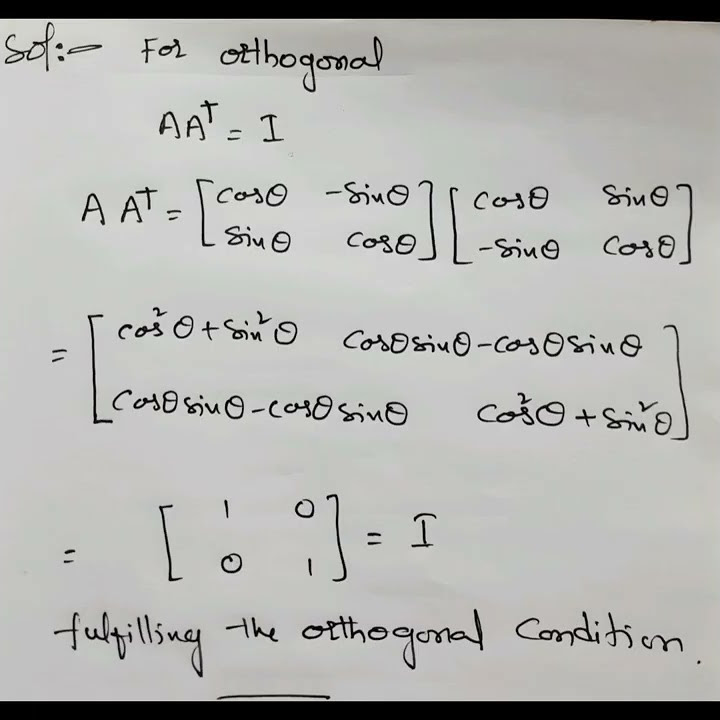 Sol:- For orthogonal
AA^T = I
A A^T = [cosθ -sinθ] [cosθ sinθ]
[sinθ cosθ] [-sinθ cosθ]
= [cos²θ + sin²θ cosθ sinθ - cosθ sinθ]
[cosθ sinθ - cosθ sinθ cos²θ + sin²θ]
= [1 0] = I
[0 1]
fulfilling the orthogonal condition.